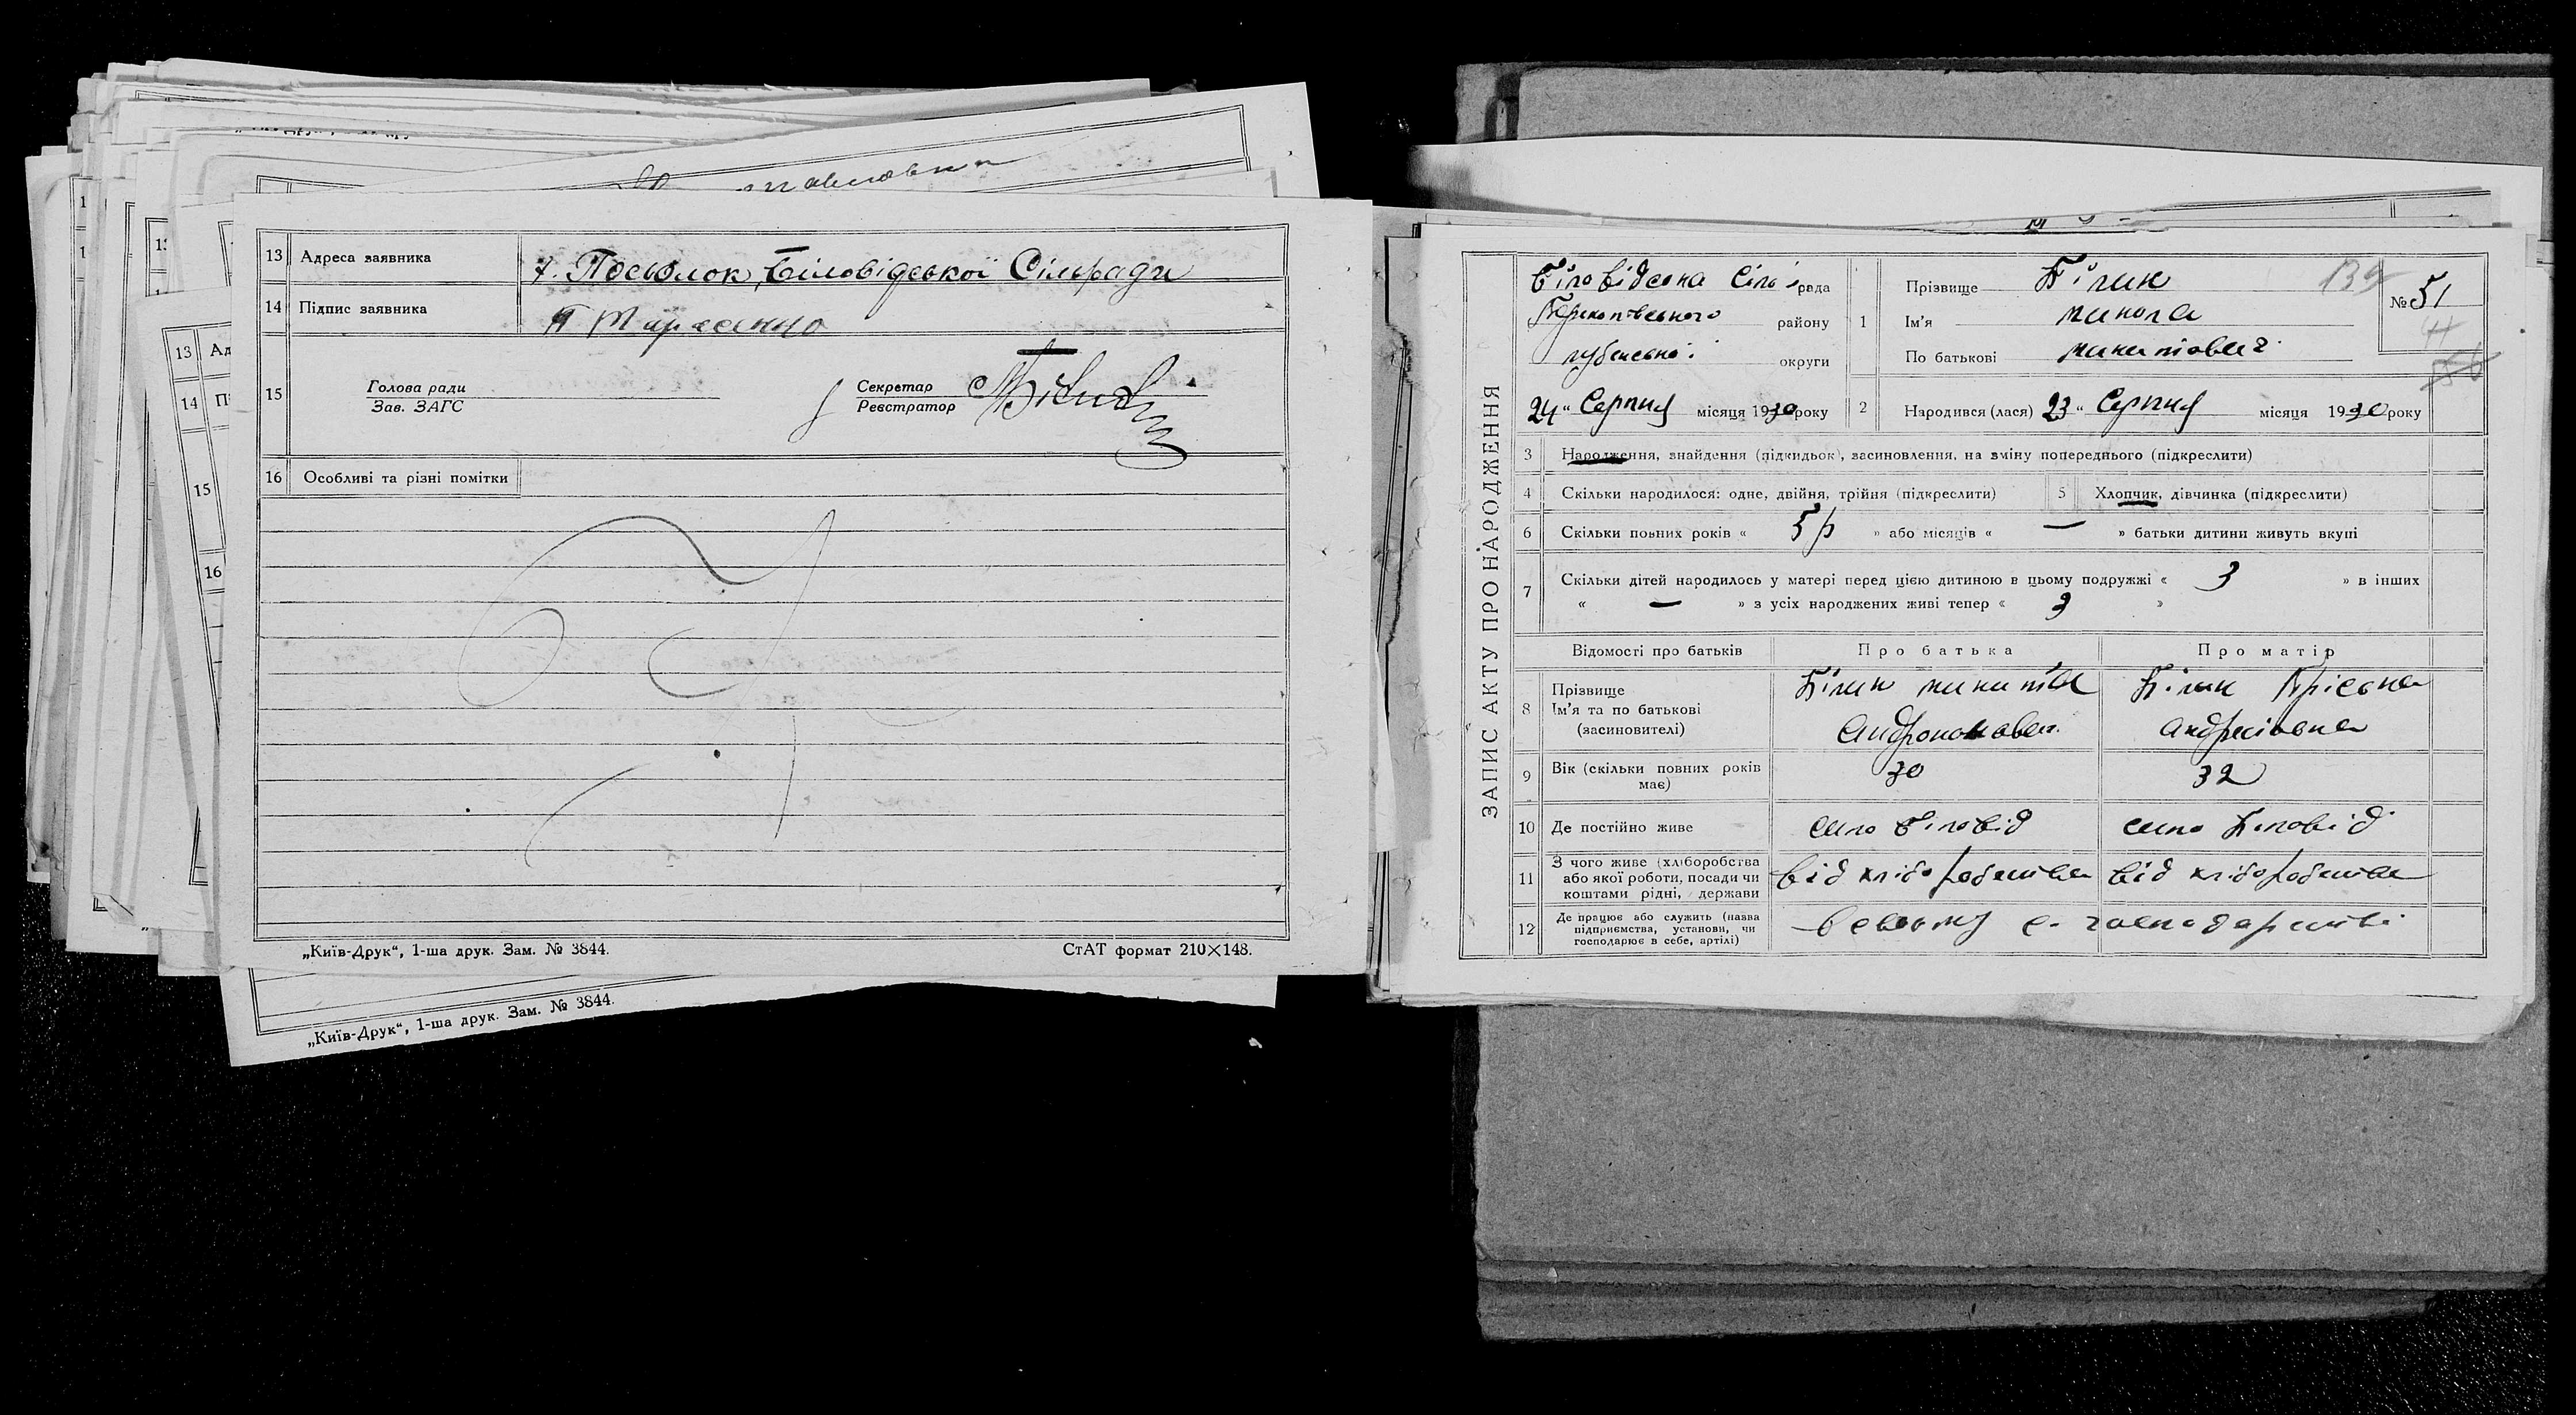 13 Адреса заявника х. Посьолок, Біловідської Сільради
14 Підпис заявника
15 Голова ради
Зав. ЗАГС
Секретар
Реєстратор
16 Особливі та різні помітки
„Київ-Друк“, 1-ша друк. Зам. № 3844.
СтАТ формат 210×148.
„Київ-Друк“, 1-ша друк. Зам. № 3844.
ЗАПИС АКТУ ПРО НАРОДЖЕННЯ
Біловідська Сіль рада
району
округи
24 “ Серпня місяця 1930 року
№ 51
1 Прізвище Білик
Ім'я Микола
По батькові Микитович
2 Народився (лася) 23 “ Серпня місяця 1930 року
3 Народження, знайдення (підкидьок), засиновлення, на зміну попереднього (підкреслити)
4 Скільки народилося: одне, двійня, трійня (підкреслити)
5 Хлопчик, дівчинка (підкреслити)
6 Скільки повних років « 5 р » або місяців « — » батьки дитини живуть вкупі
7 Скільки дітей народилось у матері перед цією дитиною в цьому подружжі « 3 » в інших
« — » з усіх народжених живі тепер « 3 »
Відомості про батьків Про батька Про матір
8 Прізвище
Ім'я та по батькові
(засновителі)
Білик Микита
Білик
Андріївна
9 Вік (скільки повних років
має) 30 32
10 Де постійно живе село Біловід село Біловід
11 З чого живе (хліборобства
або якої роботи, посади чи
коштами рідні, держави
від хліборобства від хліборобства
12 Де працює або служить (назва
підприємства, установи, чи
господарює в себе, артілі)
в своьму с. господарстві